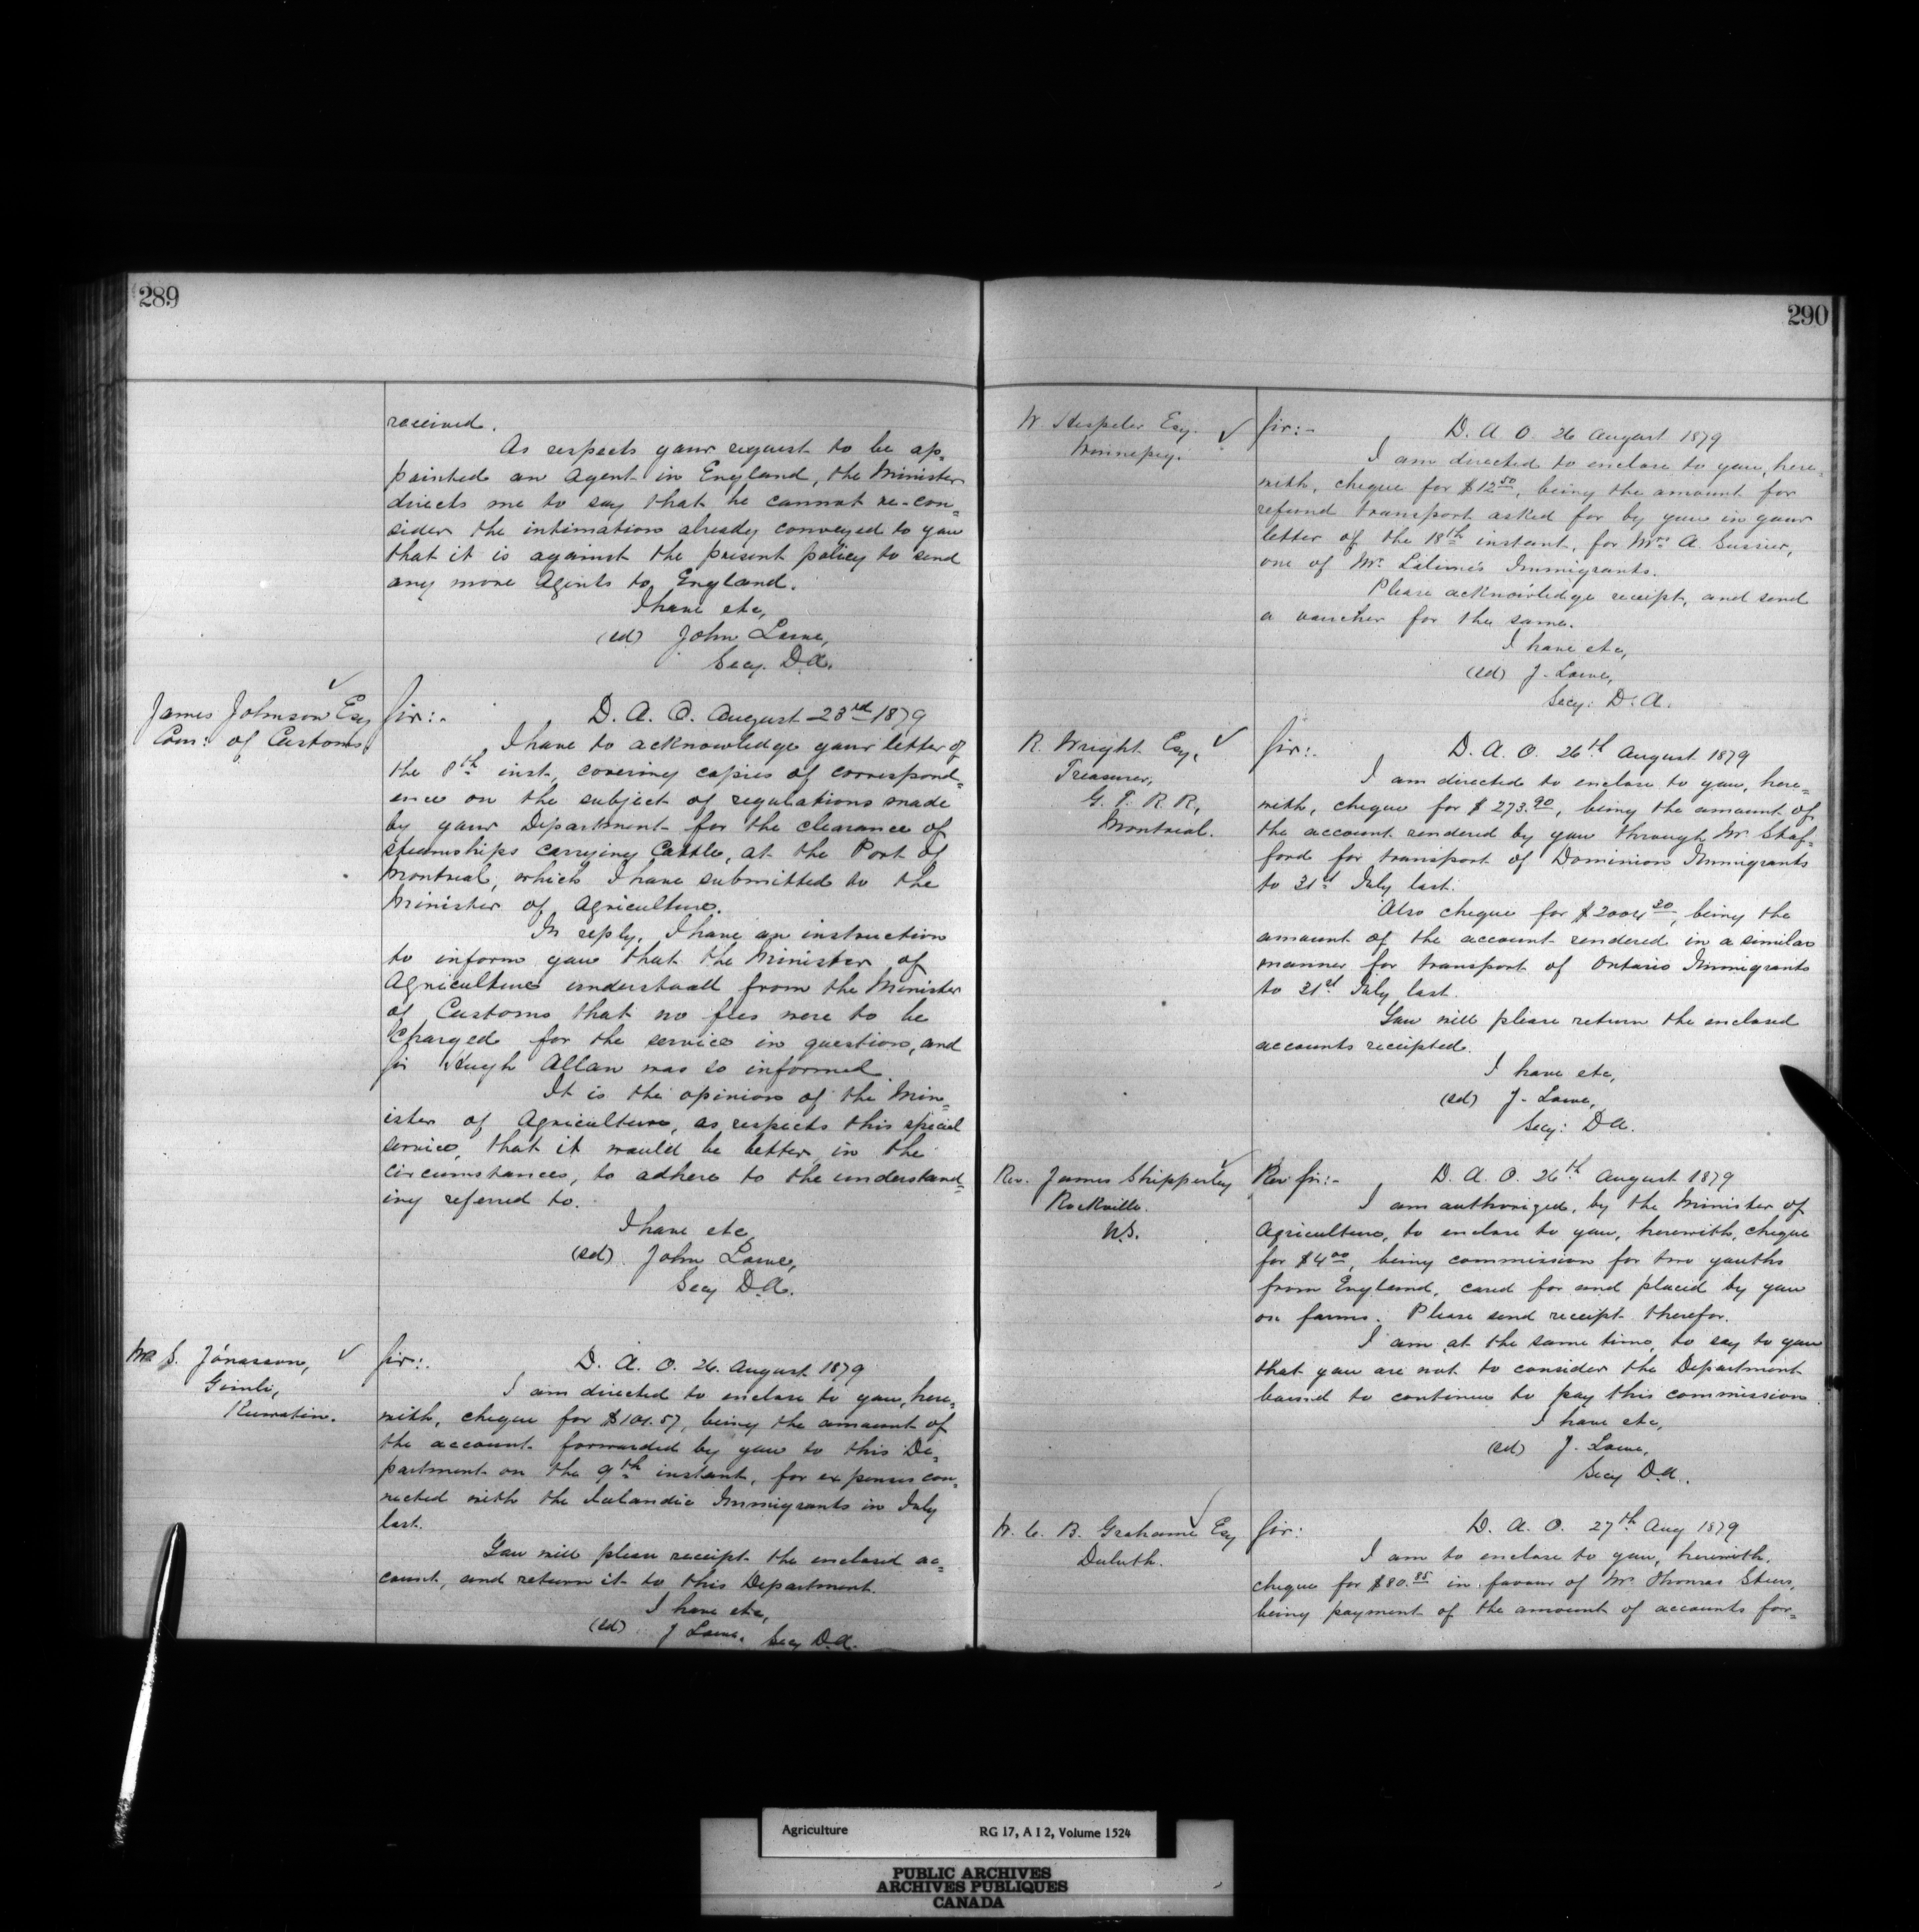 289
received.
As respects your request to be ap=
pointed an Agent in England, the Minister
directs me to say that he cannot re-con=
sider the intimation already conveyed to you
that it is against the present policy to send
any more Agents to England.
I have etc,
(sd) John Lowe,
Secy. D.A.
James Johnson Esq
Com: of Customs.
Sir:- D. A. O. August 23rd 1879
I have to acknowledge your letter of
the 8th inst, covering copies of correspond=
ence on the subject of regulations made
by your Department for the clearance of
steamships carrying Cattle, at the Port of
Montreal, which I have submitted to the
Minister of Agriculture.
In reply, I have an instruction
to inform you that the Minister of
Agriculture understood from the Minister
of Customs that no fees were to be
Charged for the service in question, and
Sir Hugh Allan was so informed.
It is the opinion of the Min=
ister of Agriculture, as respects this special
service, that it would be better, in the
circumstances, to adhere to the understand=
ing referred to.
I have etc
(sd) John Lowe,
Secy D.A.
Mr S. Jónasson,
Gimli,
Keewatin.
Sir:- D. A. O. 26. August 1879
I am directed to enclose to you, here=
with, cheque for $101.57, being the amount of
the account forwarded by you to this De=
partment on the 9th instant, for expenses con=
nected with the Icelandic Immigrants in July
last.
You will please receipt the enclosed ac=
count, and return it to this Department.
I have etc,
(sd) J Lowe, Secy D.A.
290
W Hespeler Esq.
Winnipeg.
Sir:- D. A. O. 26 August 1879
I am directed to enclose to you, here=
with, cheque for $12.50, being the amount for
refund transport asked for by you in your
letter of the 18th instant, for Mrs A.
one of Mr. Immigrants.
Please acknowledge receipt, and send
a voucher for the same.
I have etc,
(sd) J. Lowe,
Secy: D. A.
R. Wright Esq,
Treasurer,
G. T. R. R,
Montreal.
Sir:- D. A. O. 26th August 1879
I am directed to enclose to you, here=
with, cheque for $273.90, being the amount of
the account rendered by you through Mr. Staf=
ford for transport of Dominion Immigrants
to 31st July last.
Also cheque for $2004.30, being the
amount of the account rendered in a similar
manner for transport of Ontario Immigrants
to 31st July last.
You will please return the enclosed
accounts receipted.
I have etc,
(sd) J. Lowe,
Secy: D A.
Rev. James Shipperley
Rockville.
N.S.
Rev Sir:- D. A. O. 26th August 1879
I am authorized, by the Minister of
Agriculture, to enclose to you, herewith, cheque
for $4.00, being commission for two youths
from England, cared for and placed by you
on farms. Please send receipt therefor.
I am, at the same time, to say to you
that you are not to consider the Department
bound to continue to pay this commission.
I have etc,
(sd) J. Lowe,
Secy D.A.
W. C. B. Grahame Esq
Duluth.
Sir: D. A. O. 27th Aug 1879
I am to enclose to you, herewith,
cheque for $80.85 in favour of Mr. Thomas
being payment of the amount of accounts for=
Agriculture RG 17, A I 2, Volume 1524
PUBLIC ARCHIVES
ARCHIVES PUBLIQUES
CANADA